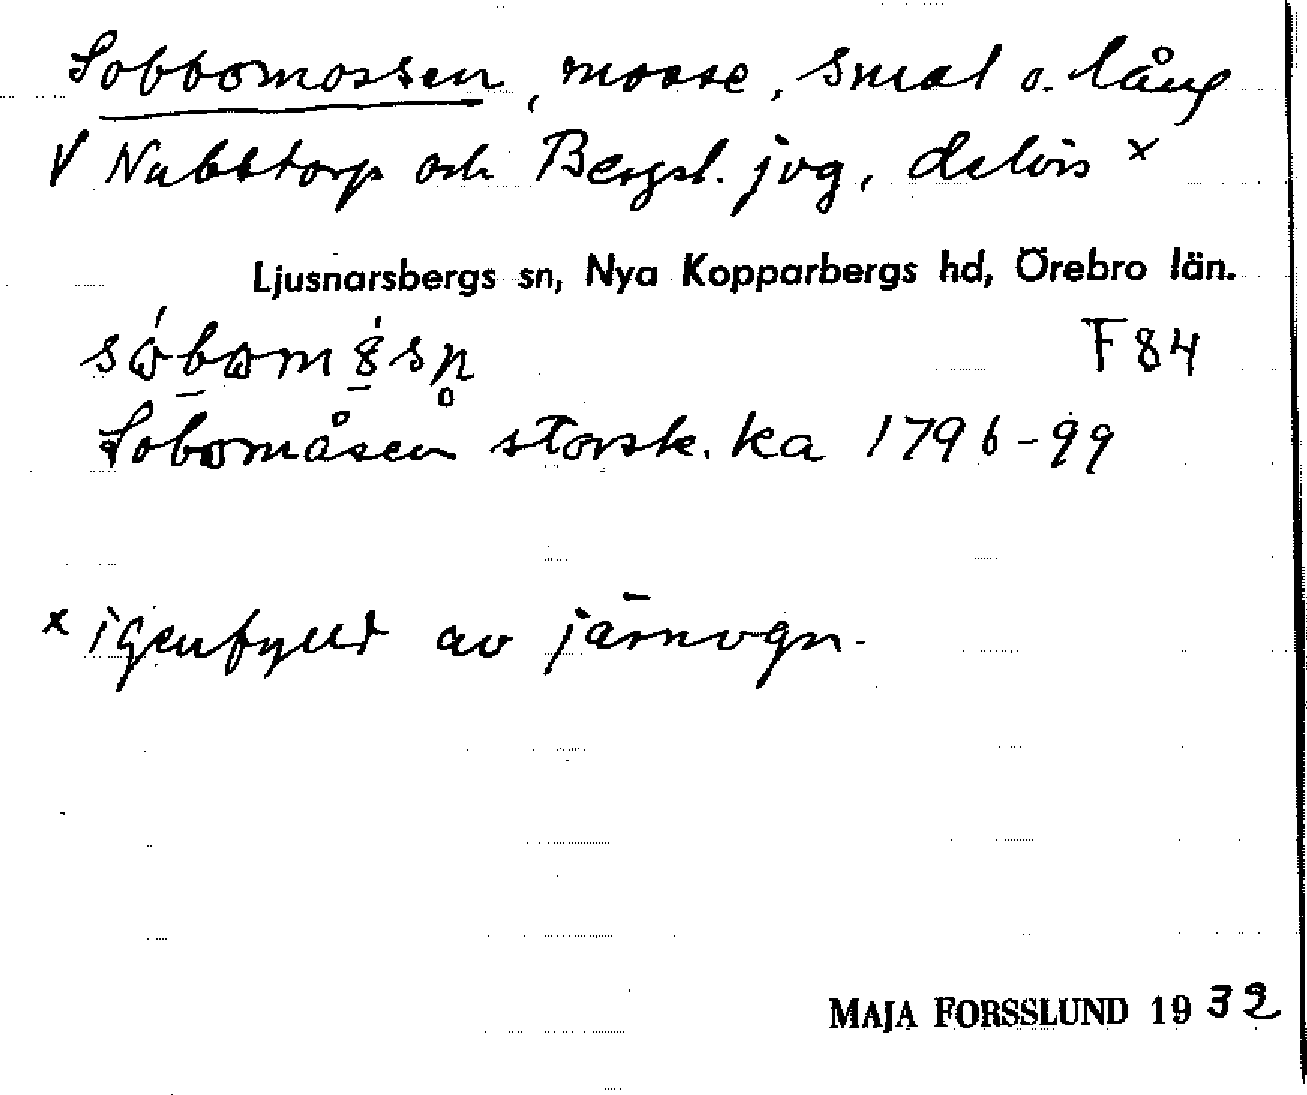 Sobbomossen, mosse, smal o. lång
V Nabbtorp och Bergsl. jvg, delvis x
Ljusnarsbergs sn, Nya Kopparbergs hd, Örebro län.
F 84
Sobomåsen storsk. ka 1796-99
x igenfylld av järnvgn.
MAJA FORSSLUND 1932